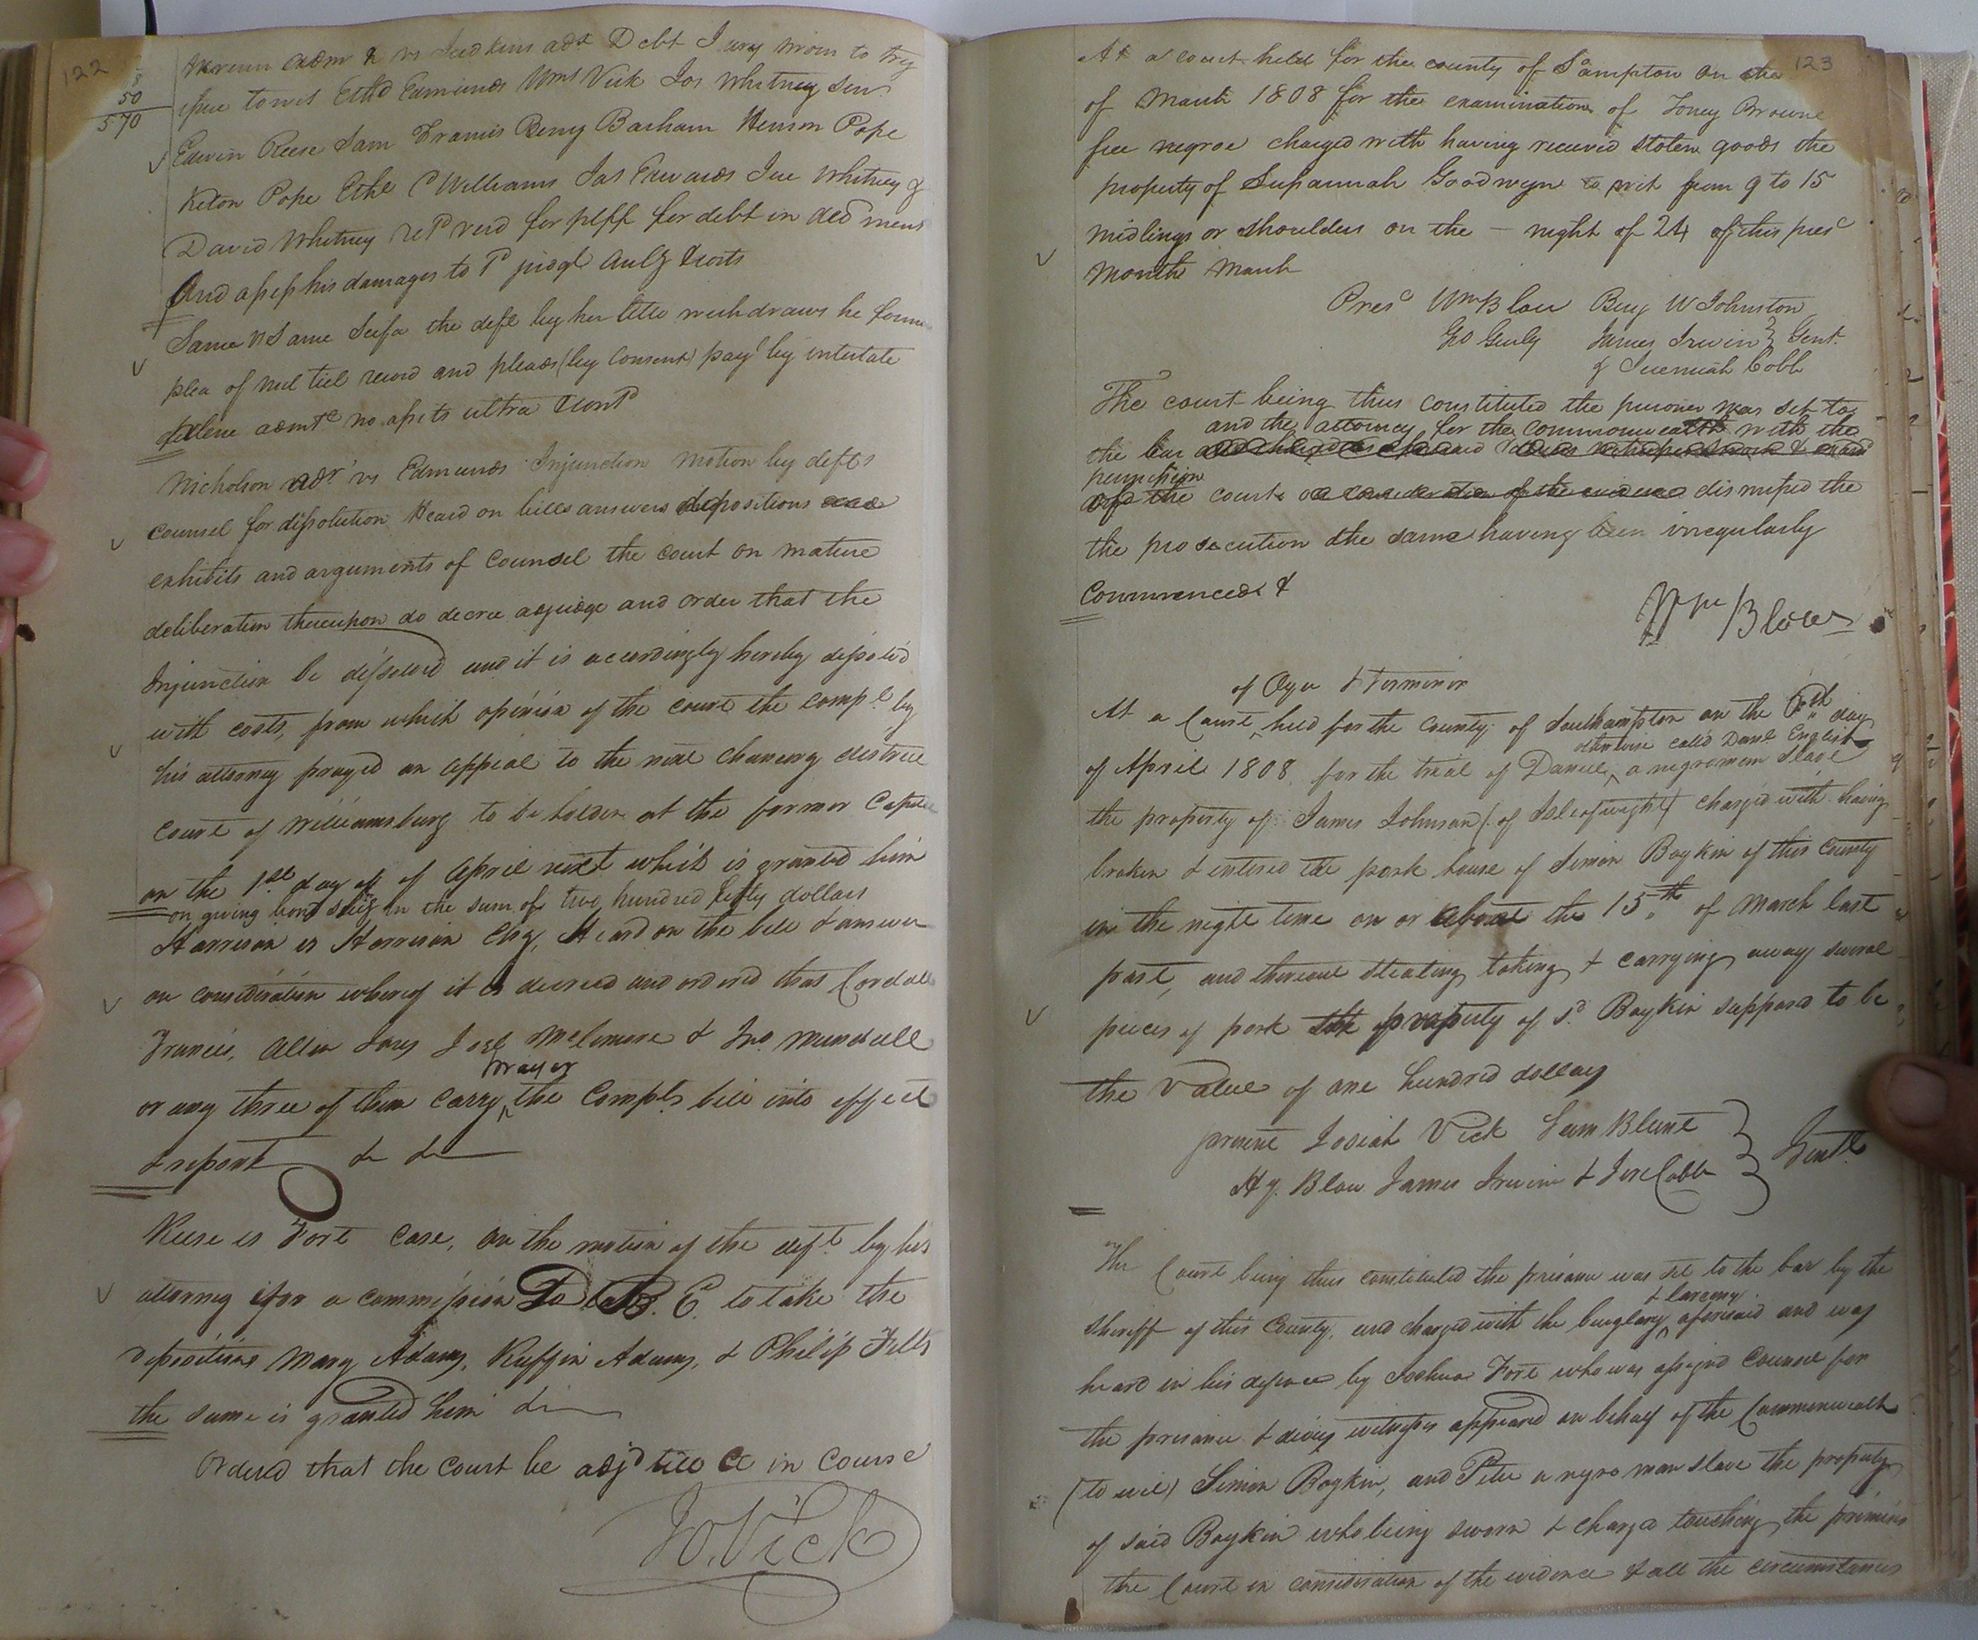 122
8
50
570
admr & vs Judkins adx Debt Jury sworn to try
issue towit Etho Edmunds Wms Vick Jos Whitney Sen
Edwin Reese Sam Francis Benj Barham Henson Pope
Keton Pope Ethe C Williams Jas Edwards Jno Whitney &
David Whitney ret verd for plff for debt in decl ment
And assess his damages to 1d judgt Accly & costs
Same vs Same Scifa the deft by her atto withdraws he former
plea of nul tiel record and pleads (by consent) payt by intestate
& plene admte no assets ultra & contd
Nicholson adr vs Edmunds Injunction motion by defts
counsel for dissolution Heard on bills answers depositions and
exhibits and arguments of counsel the court on mature
deliberation thereupon do decree adjudge and order that the
Injunction be dissolved and it is accordingly hereby dissolvd
with costs, from which opinion of the court the complt by
his attorney prayed an appeal to the next chancery district
court of Williamsburg to be holden at the former Capitol
on the 1st day of of April next which is granted him
on giving bond & secy in the sum of two hundred fifty dollars
Harrison vs Harrison Chy, Heard on the bill & answer
on consideration whereof it is decreed and ordered that Cordall
Francis, Allen Jones Joel Mclemore & Jno. Mundall
prayer
or any three of them carry the Complts bill into effect
& report &c &c
Reese vs Fort Case, on the motion of the deft by his
attorney for a commission D B. E to take the
depositions Mary Adams, Ruffin Adams, & Philip Felts
the same is granted him &c
Ordered that the court be adjd till C in Course
Jo. Vick
123
At a court held for the county of Sampton on the
of March 1808 for the examination of Toney Browne
free negroe charged with having received stolen goods the
property of Susannah Goodwyn to wit from 9 to 15
midlings or shoulders on the – night of 24 of this pres
month March
Pres Wm Blow Benj W Johnston
Go Gurly James Irwin } Gent.
& Jeremiah Cobb
The court being thus constituted the prisoner was set to
and the attorney for the commonwealth with the
the bar
permission
of the court dismissed the
the prosecution the same having been irregularly
Commenced &
Wm Blow
of Oyer & Terminor
At a Court held for the County of Southampton on the 6th day
otherwise calld Danl English
of April 1808 for the trial of Daniel, a negro man slave
the property of James Johnson (of Isleofwight) charged with having
broken & entered the pork house of Simon Boykin of this County
in the night time on or about the 15th of March last
past, and thereout stealing, taking, & carrying away several
pieces of pork the property of sd. Boykin supposed to be
the Value of one hundred dollars
present Josiah Vick Sam Blunt
Hy. Blow James Irwin & Jere Cobb } Gentl.
The Court being thus constituted the prisoner was set to the bar by the
& larceny
sheriff of this County, and charged with the burglary aforesaid and was
heard in his defence by Joshua Fort who was assignd Counsel for
the prisoner & divers witnesses appeared on behalf of the Commonwealth
(to wit) Simon Boykin, and Peter a negro man slave the property
of said Boykin who being sworn & charged touching the premises
the Court on consideration of the evidence & all the circumstances